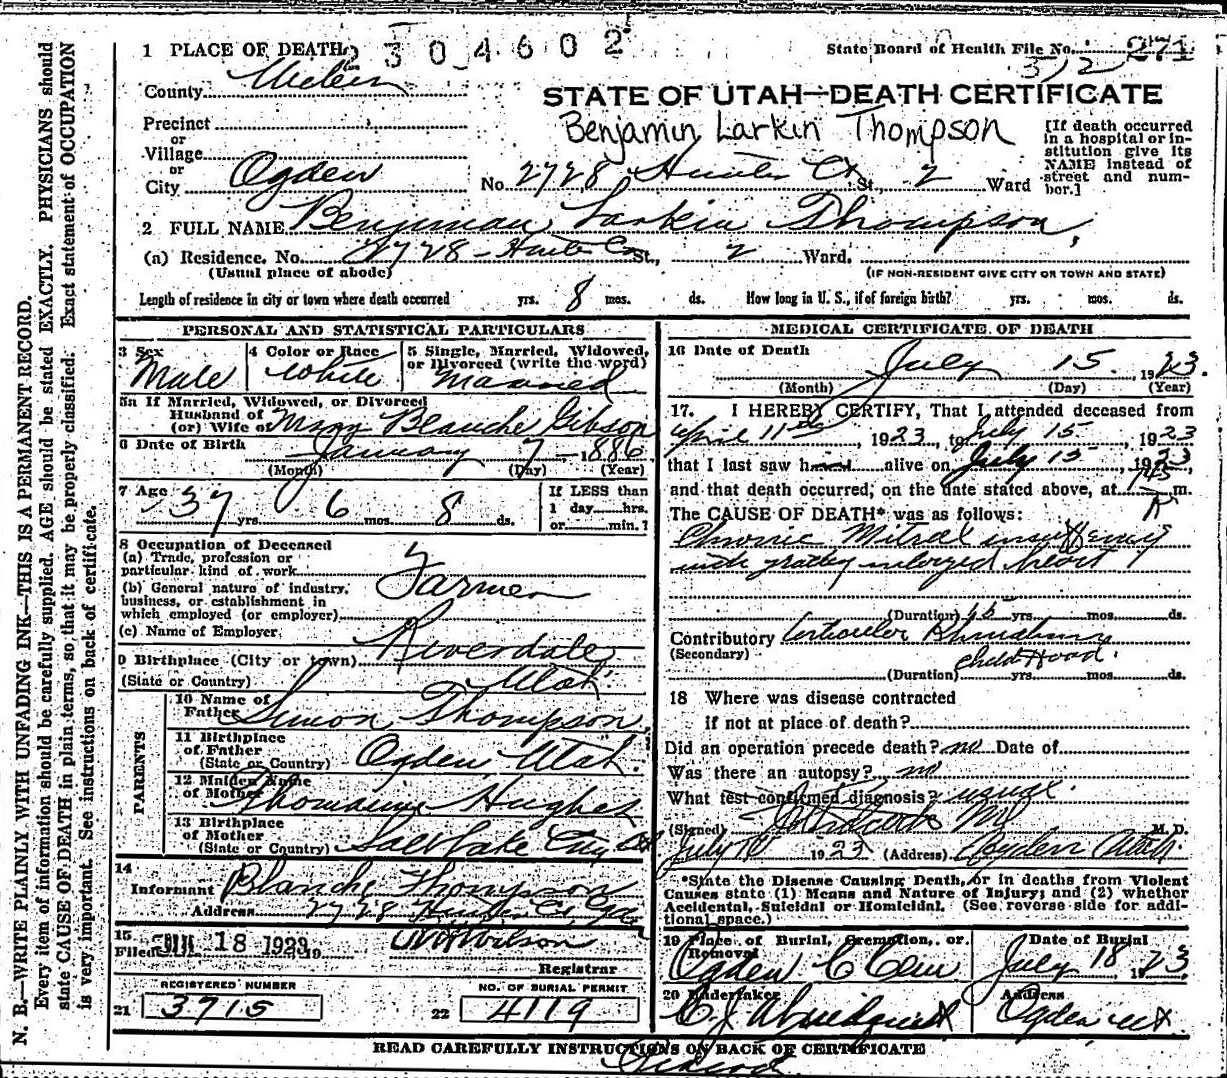 N. B.—WRITE PLAINLY WITH UNFADING INK—THIS IS A PERMANENT RECORD.
Every item of information should be carefully supplied. AGE should be stated EXACTLY. PHYSICIANS should
state CAUSE OF DEATH in plain terms, so that it may be properly classified. Exact statement of OCCUPATION
is very important. See instructions on back of certificate.
2304602
State Board of Health File No. 271
312
1 PLACE OF DEATH
County Weber
STATE OF UTAH—DEATH CERTIFICATE
Benjamin Larkin Thompson
Precinct
or
Village
or
City Ogden No. 2728 Hunter Ct St., 2 Ward
[If death occurred
in a hospital or in-
stitution give its
NAME instead of
street and num-
ber.]
2 FULL NAME Benjman Larkin Thompson
(a) Residence. No. 2728 - Hunter Ct St., 2 Ward.
(Usual place of abode)
(IF NON-RESIDENT GIVE CITY OR TOWN AND STATE)
Length of residence in city or town where death occurred yrs. 8 mos. ds. How long in U. S., if of foreign birth? yrs. mos. ds.
PERSONAL AND STATISTICAL PARTICULARS
3 Sex
Male
4 Color or Race
White
5 Single, Married, Widowed,
or Divorced (write the word)
Married
5a If Married, Widowed, or Divorced
Husband of
(or) Wife of Mary Blanche Gibson
6 Date of Birth
January 7 - 1886
(Month) (Day) (Year)
7 Age
37 yrs. 6 mos. 8 ds.
If LESS than
1 day hrs.
or min.?
8 Occupation of Deceased
(a) Trade, profession or
particular kind of work Farmer
(b) General nature of industry,
business, or establishment in
which employed (or employer)
(c) Name of Employer
9 Birthplace (City or town) Riverdale
(State or Country) Utah
PARENTS
10 Name of
Father Simon Thompson
11 Birthplace
of Father
(State or Country) Ogden, Utah.
12 Maiden Name
of Mother Hughes
13 Birthplace
of Mother
(State or Country) Salt Lake City Ut
14
Informant Blanche Thompson
Address 2728 Hunter Ct Ogden
15
Filed JUL 18 1923 19
Wilson
Registrar
REGISTERED NUMBER
21 3715
NO. OF BURIAL PERMIT
22 4119
MEDICAL CERTIFICATE OF DEATH
16 Date of Death
July 15. 1923.
(Month) (Day) (Year)
17. I HEREBY CERTIFY, That I attended deceased from
April 11th, 1923, to July 15, 1923
that I last saw h alive on July 15, 1923,
and that death occurred, on the date stated above, at 145 A m.
The CAUSE OF DEATH* was as follows:
Chronic Mitral insufficiency
with greatly enlarged heart
(Duration) yrs. mos. ds.
Contributory Articular Rheumatism
(Secondary)
Child Hood.
(Duration) yrs. mos. ds.
18 Where was disease contracted
if not at place of death?
Did an operation precede death? no Date of
Was there an autopsy? no
What test confirmed diagnosis? usual.
(Signed) M. D.
July 1923 (Address) Ogden Utah.
*State the Disease Causing Death, or in deaths from Violent
Causes state (1) Means and Nature of Injury; and (2) whether
Accidental, Suicidal or Homicidal. (See reverse side for addi-
tional space.)
19 Place of Burial, Cremation, or
Removal
Ogden C Cem
Date of Burial
July 18 1923
20 Undertaker
Address
Ogden Ut.
READ CAREFULLY INSTRUCTIONS ON BACK OF CERTIFICATE